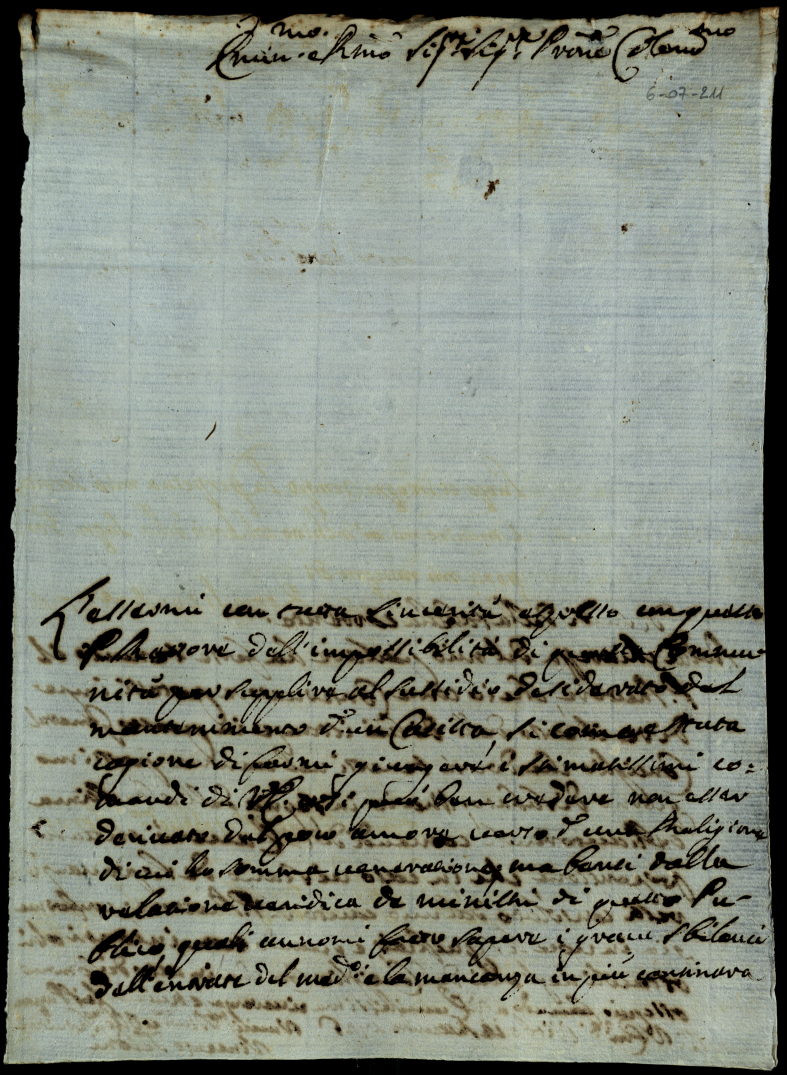 Emin.mo e Rmo Sigre Sigre Prone Colendmo
6-07-211
l'essermi con tutta sincerità esposto con questo
dell'impossibilità di questa Commu-
nità per supplire al sussidio desiderato del
mantenimento d'un si come è stata
capione di farmi giungere i stimatissimi co=
mandi di può ben credere non esser
derivato dal poco amore verso d'una Religione
di cui ho somma venerazione, ma bensi dalla
relazione veridica de ministri di questo Pu-
blico quali annomi fatto sapere i gravi sbilanci
dell'entrate del medo: e la mancanza in più continova